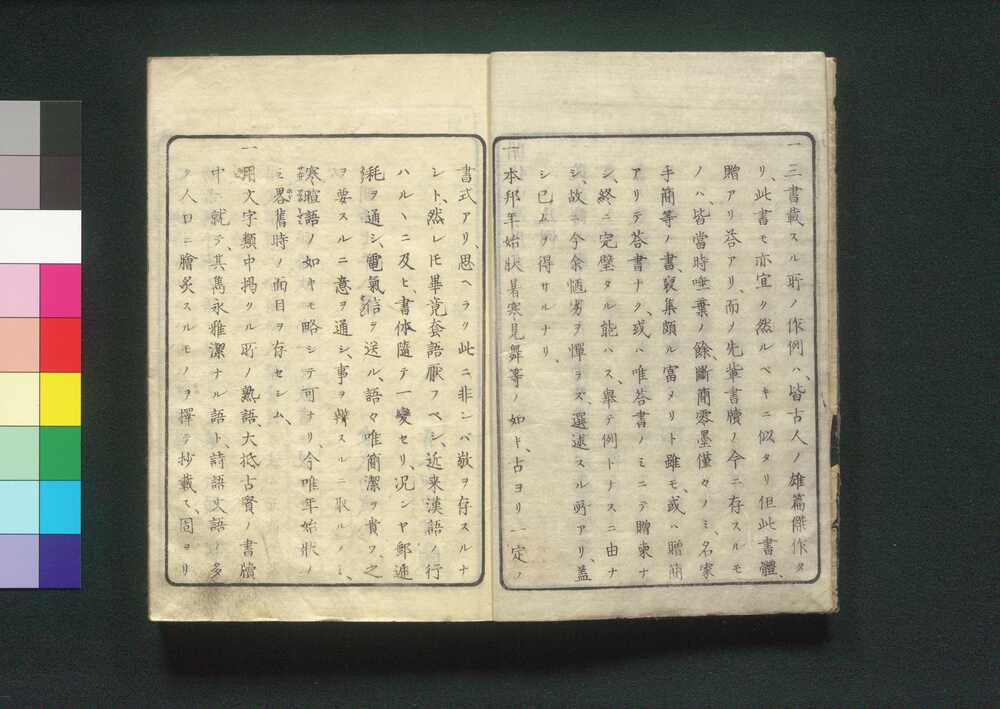 一三書載スル所ノ作例ハ、皆古人ノ雄篇傑作タ
リ、此書モ亦宜ク然ルベキニ似タリ但此書體、
贈アリ答アリ、而ノ先輩書牘ノ今ニ存スルモ
ノハ、皆當時唾棄ノ餘、斷簡零墨僅々ノミ、名家
手簡等ノ書、裒集頗ル富メリト雖モ、或ハ贈簡
アリテ答書ナク、或ハ唯答書ノミニテ贈柬ナ
シ、終ニ完璧タル能ハス、舉テ例トナスニ由ナ
シ、故ニ今余陋劣ヲ憚ラズ、選述スル所アリ、蓋
シ已ムヲ得サルナリ、
一本邦年始狀暑寒見舞等ノ如キ、古ヨリ一定ノ
書式アリ、思ヘラク此ニ非ンバ敬ヲ存スルナ
シト、然レ𪜈畢竟套語厭フベシ、近来漢語ノ行
ハルヽニ及ヒ、書体隨テ一變セリ、况ンヤ郵逓
耗ヲ通シ、電氣信ヲ送ル、語々唯簡潔ヲ貴フ、之
ヲ要スルニ意ヲ通シ、事ヲ辨スルニ取ルノミ、
寒暄語ノ如キモ略シテ可ナリ、今唯年始狀ノ
ミ畧舊時ノ面目ヲ存セシム、
一用文字類中掲クル所ノ熟語、大抵古賢ノ書牘
中ニ就テ、其雋永雅潔ナル語ト、詩語文語ノ多
ク人口ニ膾炙スルモノヲ擇テ抄載ス、固ヨリ